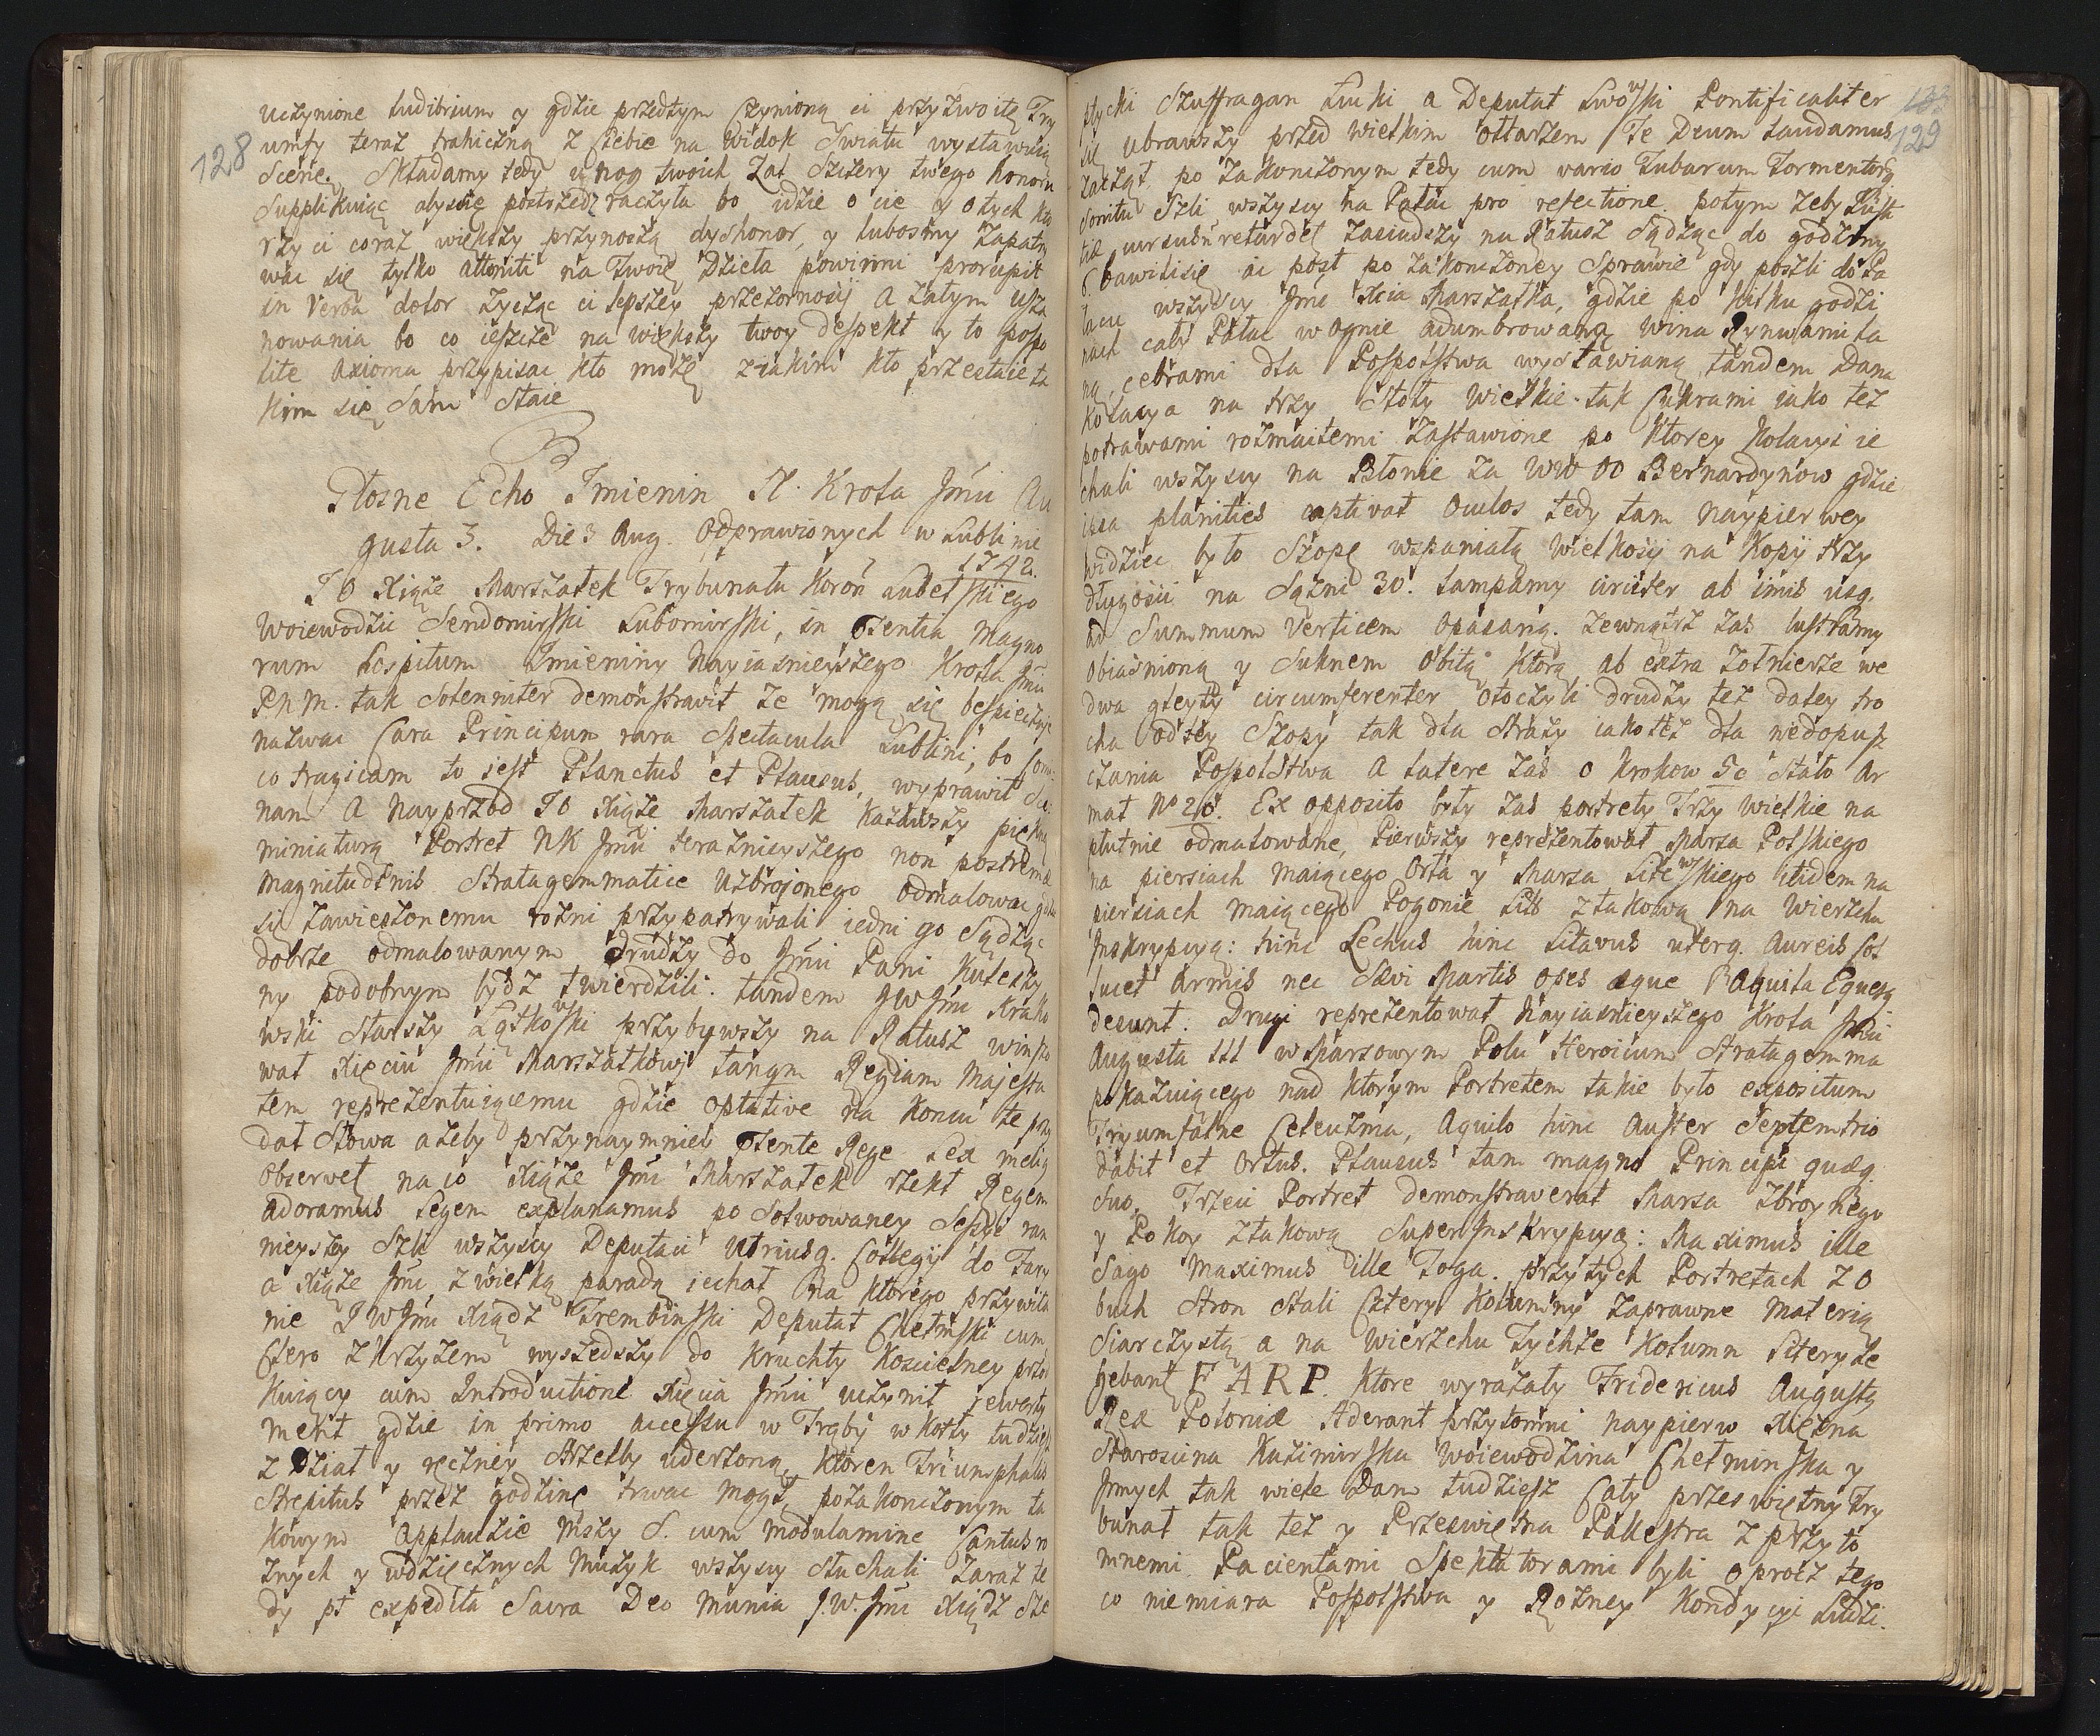 128
uczynione ludibrium y gdzie przedtym czynioną ci przyzwoitę Try
umfy teraz trahiczną z Ciebie na widok Swiatu wystawuią
Scenę. Składamy tedy u nog twoich Zal Szczery twego honoru
Supplikuiąc abyście postrzedz raczyła bo idzie o cie y o tych kto
rzy ci coraz większy przynoszą dyshonor, y lubosmy zapatry
wac się tylko attoniti na Twoię Dzieła powinni prorupit
in Verba dolor zycząc ci lepszey przezornosci A zatym usza
nowania bo co ieszcze na większy twoy despekt y to pospo
lite Axioma przypisac kto może z iakim kto przestaie ta
kim się Sam Staie
Głosne Echo Imienin N. Krola Jmći Au
gusta 3. Die 3 Aug. Odprawionych w Lublinie
1742.
J O Xiąże Marszałek Trybunału Koron̄ Lubelskiego
Woiewodzic Sendomirski Lubomirski, in Psentia Magno
rum hospitum Imieniny Nayiasnieyszego Krola Jmći
P. N. M. tak Solenniter demonstravit ze mogą się bespiecznie
nazwac Cara Principum rara Spectacula Lublini, bo Comi
co tragicam to iest Planctus et Plausus, wyprawił Sce
nam A Nayprzod J O Xiąże Marszałek Kazawszy piękną
miniaturą Portret NK Jmći teraznieyszego non postremæ
Magnitudinis Stratagemmatice Uzbrojonego odmalowac gdzie
się zawieszonemu rożni przypatrywali iedni go Sądząc
dobrze odmalowanym drudzy do Jmći Pani Kuleszy
ny podobnym bydz twierdzili. tandem JWJmć Krako
wski Starszy Łętkowski przybywszy na Ratusz winszo
wał Xięciu Jmći Marszałkowi tanqm Regiam Majesta
tem reprezentuiącemu gdzie optative na koncu te przy
dał Słowa azeby przynaymniey Psente Rege Lex melig
observet na co Xiąże Jmć Marszałek rzekł Regem
adoramus Legem explanamus po Solwowaney Sessyi ran
nieyszey Szli wszyscy Deputaci Utriusq. Collegij do Fary
a Xiąże Jmć, z wielką paradą iechał Na ktorego przywita
nie JWJmć Xiądz Trembinski Deputat Chełmski cum
Clero z krzyzem wyszedszy do kruchty koscielney przod
kuiący cum Introductione Xięcia Jmći uczynił rewerty
ment gdzie in primo accessu w Trąby w kotły tudziesz
z Dział y ręczney Strzelby uderzono, ktoren Triumphalis
Strepitus przez godzinę trwac mogł, po zakonczonym ta
kowym Applauzie Mszy S. cum modulamine Cantus ro
znych y wdzięcznych Muzyk wszyscy słuchali zaraz te
dy pt expedita Sacra Deo Munia J.W.Jmć Xiądz Sze
133
129
ptycki Szuffragan Łucki a Deputat Lwowski Pontificaliter
się ubrawszy przed wielkim ołtarzem Te Deum Laudamus
zaczął, po zakonczonym tedy cum vario Tubarum Tormentorq
Sonitu Szli wszyscy na Pałac pro refectione. potym zeby Just
tiæ cursus non retardet zasiadszy na Ratusz Sądząc do godziny
6. bawili się ac post po zakonczoney Sprawie gdy poszli do Pa
łacu wszyscy Jmć Xcia Marszałka, gdzie po kilku godzi
nach cały Pałac w Ognie adumbrowaną wina Rynwami la
no, cebrami dla Pospolstwa wystawiano, tandem Dana
Kolacya na trzy Stoły Wielkie tak Cukrami iako tez
potrawami rozmaitemi zastawione po ktorey kolacyi ie
chali wszyscy na Błonie za WW OO Bernardynow gdzie
ipsa planities captivat oculos tedy tam naypierwey
widziec było Szopę wspaniałą wielkosci na kopij trzy
długosci na Sązni 30. Lampamy circiter ab imis usq.
ad Summum Verticem Opasaną. Zewnątrz zas lustramy
obiasnioną y Suknem obitą którą ab extra Zołnierze we
dwa gleyty circumferenter otoczyli drudzy tez daley tro
cha od tey Szopy tak dla strazy iakotez dla niedopusz
czania Pospolstwa A latere zas o krokow 50 stało Ar
mat No 26. Ex opposito były zas portrety Trzy wielkie na
płutnie odmalowane, Pierwszy reprezentował Marsa Polskiego
na piersiach maiącego Orła y Marsa Litewskiego itidem na
piersiach maiącego Pogonie Litt z takową na Wierzchu
Inskrypcyą: hinc Lechus hinc Litavus uterq. Aureis Sol
lucet Armis nec Sævi Martis opes æque Aquila Equesq
desunt. Drugi reprezentował Nayiasnieyszego Krola Jmći
Augusta III w Marsowym Polu Heroicum Stratagemma
pokazuiącego nad ktorym Portretem takie było expositum
Tryumfalne Celeuzma, Aquilo hinc Auster Septemtrio
dabit et Ortus. Plausus tam magno Principi quæq.
suo. Trzeci Portret demonstraverat Marsa zbroynego
y Pokoy z takową SuperInskrypcyą: Maximus ille
Sago Maximus ille Toga. przy tych Portretach z o
buch stron stali Cztery Kolumny zaprawne Materią
Siarczystą a na Wierzchu Tychże Kolumn Litery Le
gebant F A R P. Ktore wyrazały Fridericus Augusty
Rex Poloniæ Aderant przytomni naypierw Xiężna
Staroscina Kazimirska Woiewodzina Chełminska y
Jnnych tak wiele Dam tudziesz Cały przeswiętny Try
bunał tak tez y Przeswietna Palestra z przyto
mnemi Pacientami Spektatorami byli oprocz tego
co niemiara Pospolstwa y Rożney Kondycyi Ludzi.